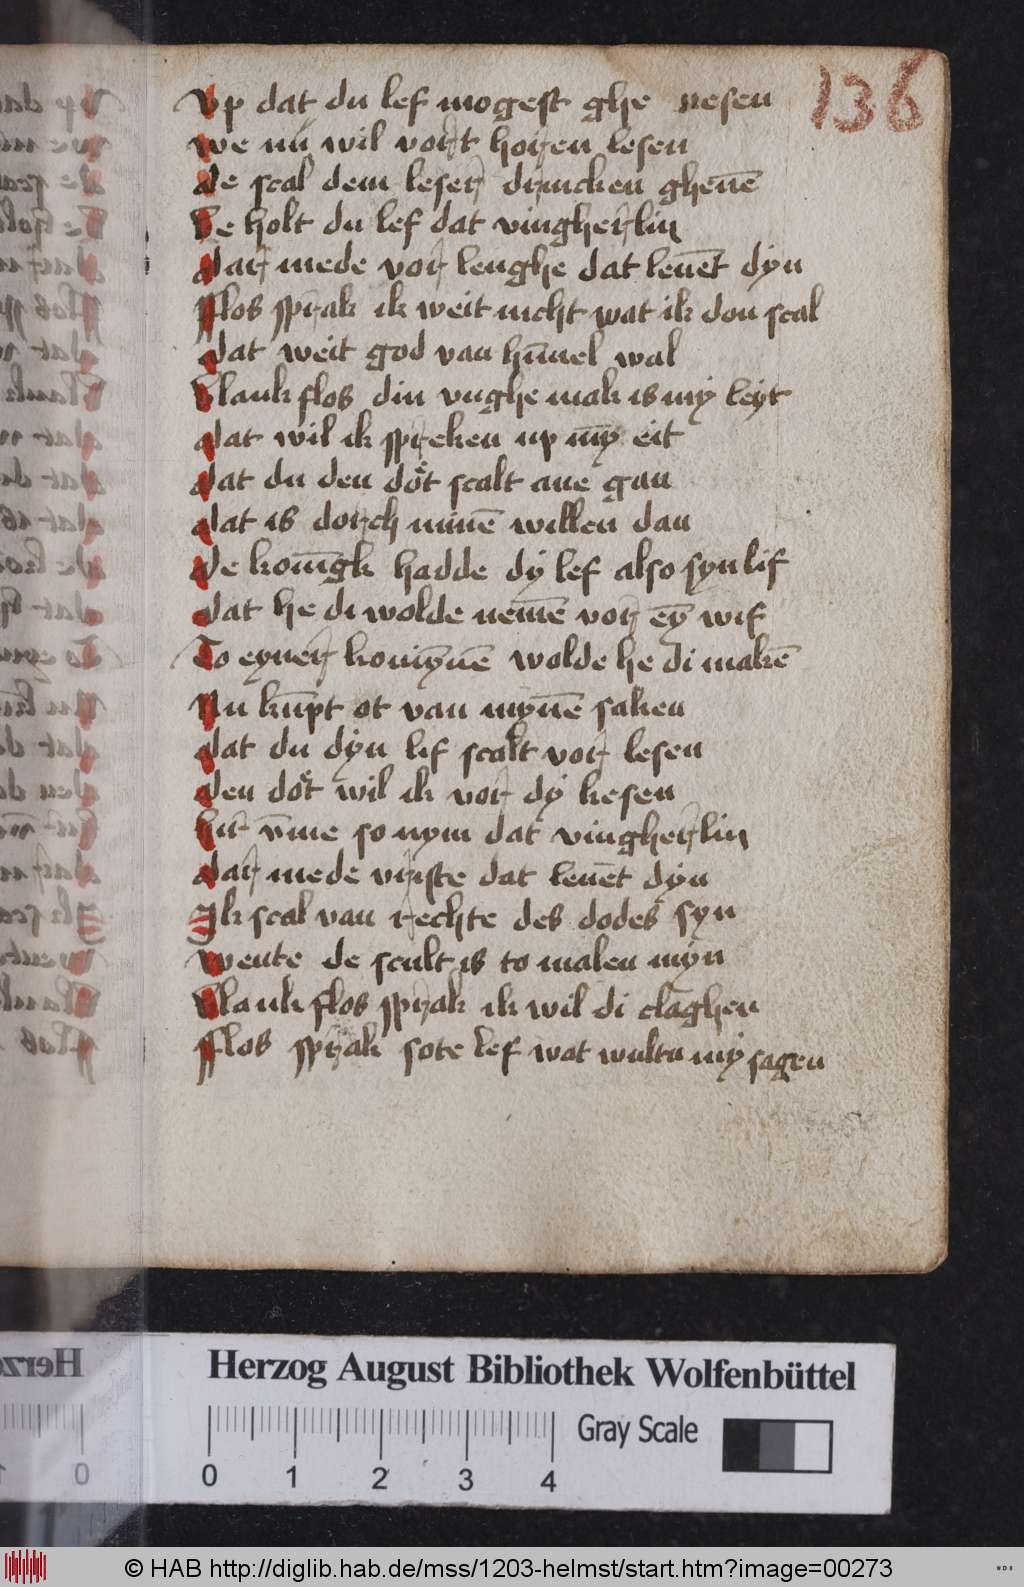 136
Vp dat du lef mogest ghe nesen
we nu wil vort horen lesen
de scal dem leser drincken gheuē
Se holt du lef dat vingherlin
dar mede vor lenghe dat leuēt dyn
fflos sprak ik weit nicht wat ik don scal
dat weit god van hīmel wal
Blankflos din vnghe mak is my leyt
dat wil ik spreken up mȳ eit
dat du den dot scalt ane gan
dat is dorch minē willen dan
de konīgk hadde dy lef also syn lif
dat he di wolde nemē vor eȳ wif
To eyner konīȳnē wolde he di makē
Nu kūpt ot van mynē saken
dat du dyn lif scalt vor lesen
den dot wil ik vor dy kesen
hir vme so nym dat vingherlin
dar mede vriste dat leuēt dyn
Ik scal van rechte des dodes syn
wente de scult is to malen myn
Blankflos sprak ik wil di claghen
fflos sprak sote lef wat wultu my sagen
Herzog August Bibliothek Wolfenbüttel
Gray Scale
0 1 2 3 4
© HAB http://diglib.hab.de/mss/1203-helmst/start.htm?image=00273